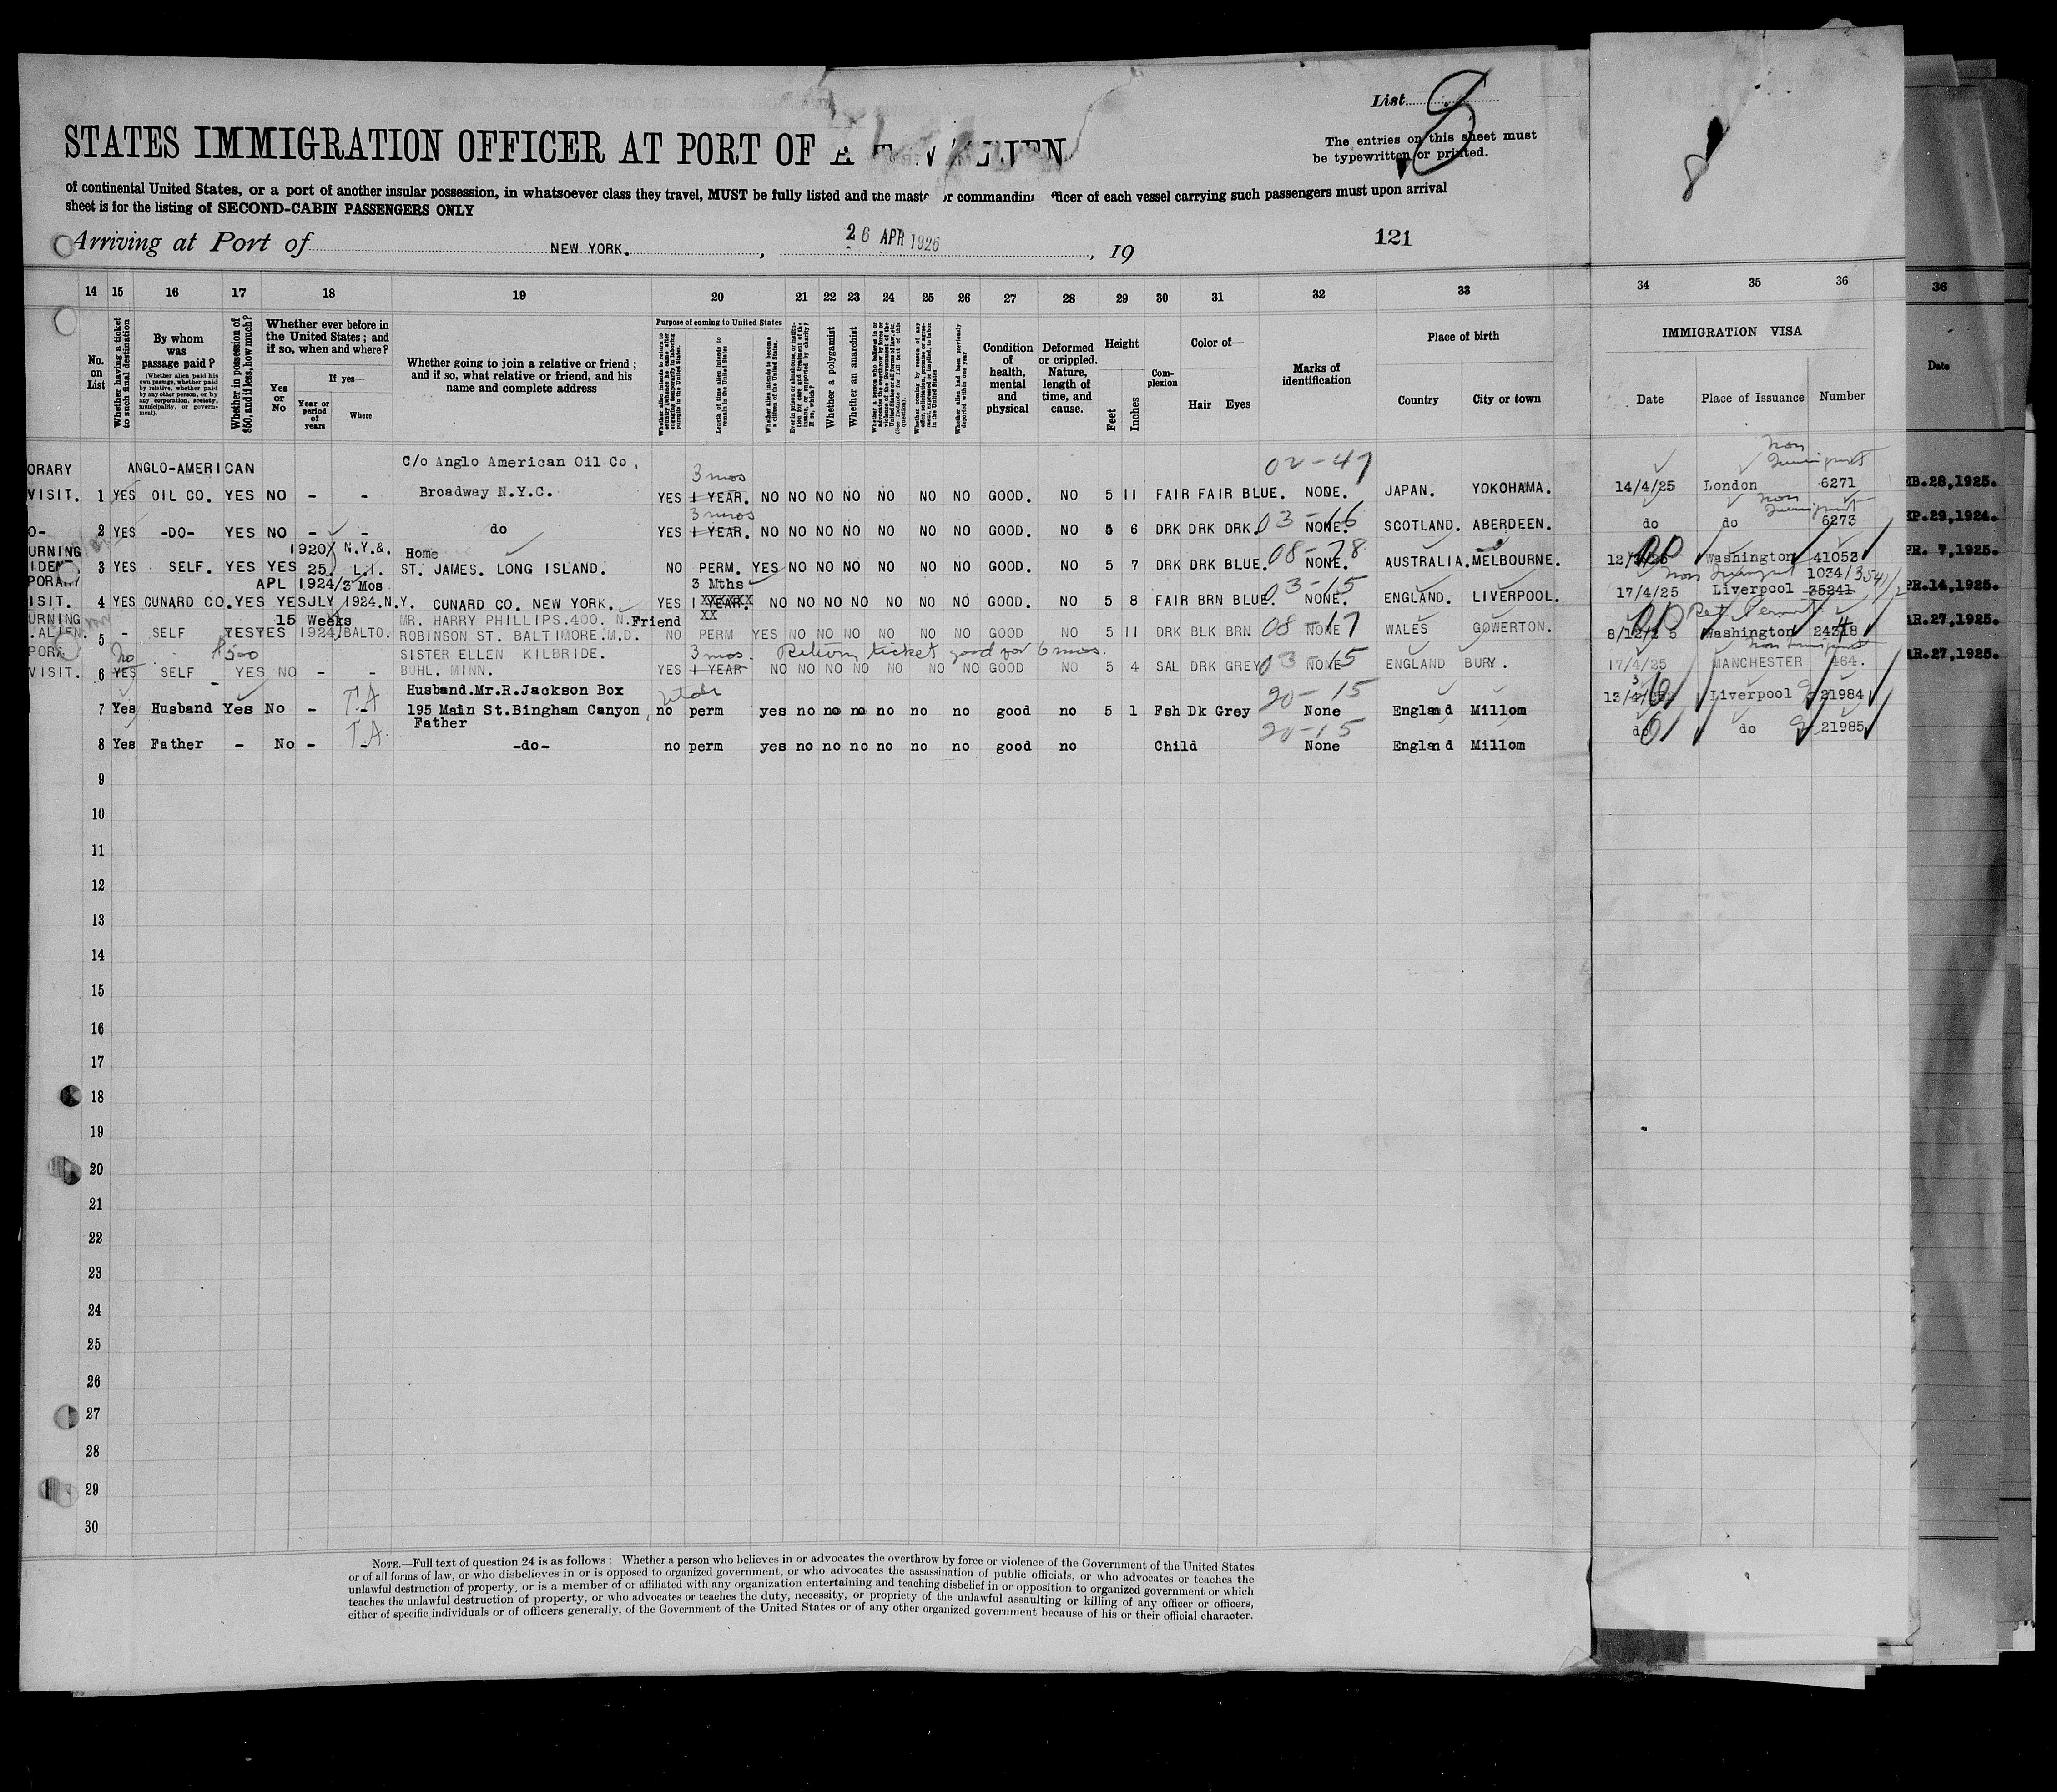 List
The entries on this sheet must
be typewritten or printed.
STATES IMMIGRATION OFFICER AT PORT OF
of continental United States, or a port of another insular possession, in whatsoever class they travel, MUST be fully listed and the master or commanding officer of each vessel carrying such passengers must upon arrival
sheet is for the listing of SECOND-CABIN PASSENGERS ONLY
Arriving at Port of NEW YORK. , 26 APR 1925 , 19 121
14 15 16 17 18 19 20 21 22 23 24 25 26 27 28 29 30 31 32 33 34 35 36 36
No. on List
Whether having a ticket to such final destination
By whom was passage paid?
(Whether alien paid his own passage, whether paid by relative, whether paid by any other person, or by any corporation, society, municipality, or government).
Whether in possession of $50, and if less, how much?
Whether ever before in the United States; and if so, when and where?
Yes or No
If yes—
Year or period of years
Where
Whether going to join a relative or friend; and if so, what relative or friend, and his name and complete address
Purpose of coming to United States
Length of time alien intends to remain in the United States
Whether alien intends to become a citizen of the United States.
Whether a polygamist
Whether an anarchist
Whether alien had been previously deported within one year
Condition of health, mental and physical
Deformed or crippled. Nature, length of time, and cause.
Height
Feet
Inches
Complexion
Color of—
Hair Eyes
Marks of identification
Place of birth
Country City or town
IMMIGRATION VISA
Date Place of Issuance Number
Date
ORARY ANGLO-AMERICAN C/o Anglo American Oil Co, 3 mos 02-47 Non Immigrant
VISIT. 1 YES OIL CO. YES NO - - Broadway N.Y.C. YES 1 YEAR. NO NO NO NO NO NO NO GOOD. NO 5 11 FAIR FAIR BLUE. NONE. JAPAN. YOKOHAMA. 14/4/25 London 6271 EB.28,1925.
3 mos 03-16 Non Immigrant
O- 2 YES -DO- YES NO - - do YES 1 YEAR. NO NO NO NO NO NO NO GOOD. NO 5 6 DRK DRK DRK. NONE. SCOTLAND. ABERDEEN. do do 6273 EP.29,1924.
URNING 1920 N.Y.&. Home 08-78
IDENT 3 YES SELF. YES YES 25. L.I. ST. JAMES. LONG ISLAND. NO PERM. YES NO NO NO NO NO NO GOOD. NO 5 7 DRK DRK BLUE. NONE. AUSTRALIA. MELBOURNE. Washington 41053 PR. 7,1925.
PORARY APL 1924/3 Mos 3 Mths 03-15 Non Immigrant 1034/
ISIT. 4 YES CUNARD CO. YES YES JLY 1924.N.Y. CUNARD CO. NEW YORK. YES 1 YEAR. NO NO NO NO NO NO NO GOOD. NO 5 8 FAIR BRN BLUE. NONE. ENGLAND. LIVERPOOL. 17/4/25 Liverpool 35241 PR.14,1925.
URNING 15 Weeks MR. HARRY PHILLIPS.400. N. Friend XX 08-17 Ret Permit
.ALIEN. 5 - SELF YES YES 1924 BALTO. ROBINSON ST. BALTIMORE.M.D. NO PERM YES NO NO NO NO NO NO GOOD NO 5 11 DRK BLK BRN NONE WALES GOWERTON. Washington 24318 AR.27,1925.
PORA no $500 SISTER ELLEN KILBRIDE. 3 mos. Return ticket good for 6 mos. 03-15 Non Immigrant
VISIT. 6 YES SELF YES NO - - BUHL. MINN. YES 1 YEAR NO NO NO NO NO NO NO GOOD NO 5 4 SAL DRK GREY NONE ENGLAND BURY. 17/4/25 MANCHESTER 464. AR.27,1925.
T.A Husband.Mr.R.Jackson Box Utah 20-15
7 Yes Husband Yes No - - 195 Main St.Bingham Canyon, no perm yes no no no no no no good no 5 1 Fsh Dk Grey None England Millom Liverpool 21984
T.A. Father 20-15
8 Yes Father - No - - -do- no perm yes no no no no no no good no Child None England Millom do do 21985
9
10
11
12
13
14
15
16
17
18
19
20
21
22
23
24
25
26
27
28
29
30
NOTE.—Full text of question 24 is as follows: Whether a person who believes in or advocates the overthrow by force or violence of the Government of the United States
or of all forms of law, or who disbelieves in or is opposed to organized government, or who advocates the assassination of public officials, or who advocates or teaches the
unlawful destruction of property, or is a member of or affiliated with any organization entertaining and teaching disbelief in or opposition to organized government or which
teaches the unlawful destruction of property, or who advocates or teaches the duty, necessity, or propriety of the unlawful assaulting or killing of any officer or officers,
either of specific individuals or of officers generally, of the Government of the United States or of any other organized government because of his or their official character.